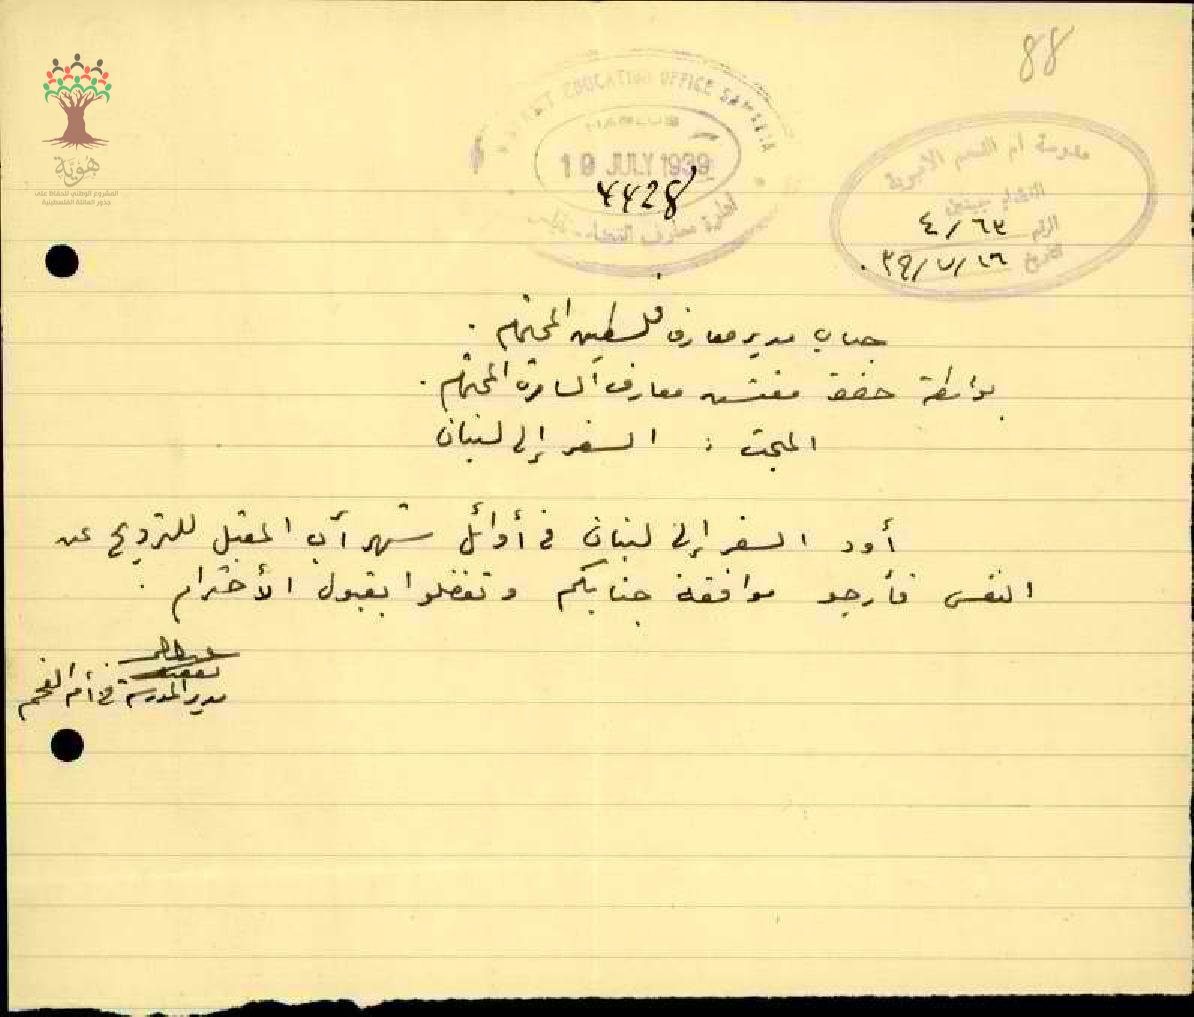 88
هُويَّة
المشروع الوطني للحفاظ على
جذور العائلة الفلسطينية
EDUCATION OFFICE SAMARIA
NABLUS
19 JULY 1939
4428
إدارة معارف القضاء نابلس
مدرسة أم الفحم الأميرية
القضاء جنين
الرقم ٤/٦٣
التاريخ ٣٩/٧/١٦
جناب مدير معارف فلسطين المحترم .
بواسطة حضرة مفتش معارف السامرة المحترم .
المبحث : السفر إلى لبنان
أود السفر إلى لبنان في أوائل شهر آب المقبل للترويح عن
النفس فأرجو موافقة جنابكم وتفضلوا بقبول الأحترام .
مدير المدرسة في أم الفحم